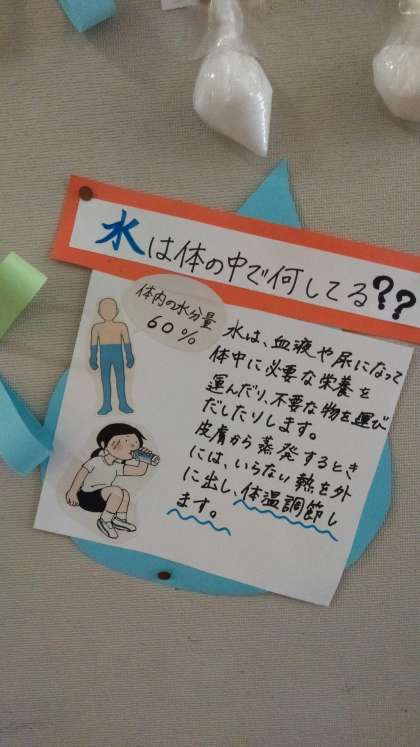 水は体の中で何してる??
体内の水分量
60%
水は、血液や尿になって
体中に必要な栄養を
運んだり、不要な物を運び
だしたりします。
皮膚から蒸発するとき
には、いらない熱を外
に出し、体温調節し
ます。